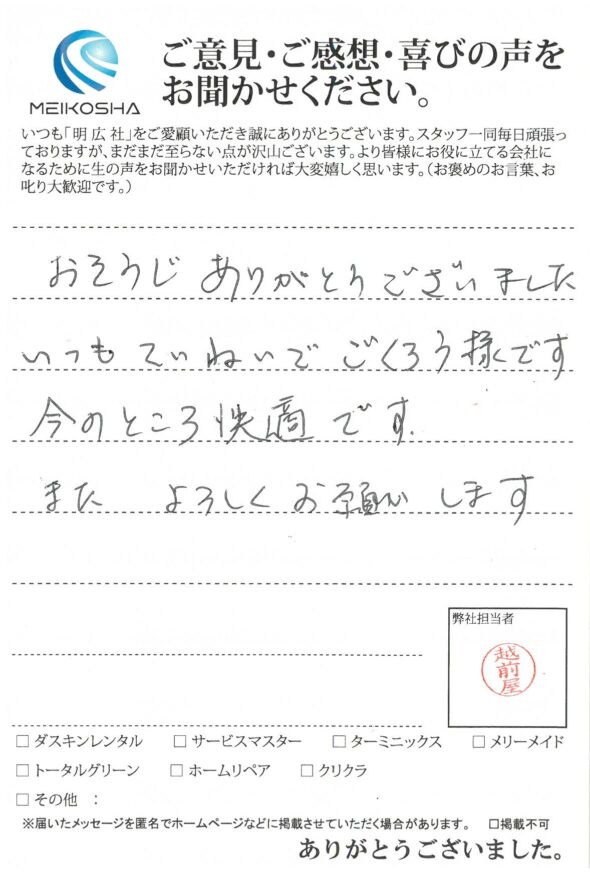 MEIKOSHA
ご意見・ご感想・喜びの声を
お聞かせください。
いつも「明広社」をご愛顧いただき誠にありがとうございます。スタッフ一同毎日頑張っ
ておりますが、まだまだ至らない点が沢山ございます。より皆様にお役に立てる会社に
なるために生の声をお聞かせいただければ大変嬉しく思います。（お褒めのお言葉、お
叱り大歓迎です。）
おそうじ ありがとうございました
いつも ていねいで ごくろう様です
今のところ快適です.
また よろしくお願い します
弊社担当者
越前屋
□ ダスキンレンタル □ サービスマスター □ ターミニックス □ メリーメイド
□ トータルグリーン □ ホームリペア □ クリクラ
□ その他 ：
※届いたメッセージを匿名でホームページなどに掲載させていただく場合があります。 □掲載不可
ありがとうございました。